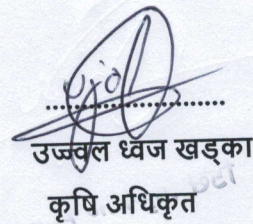 ....................
उज्ज्वल ध्वज खड्का
कृषि अधिकृत